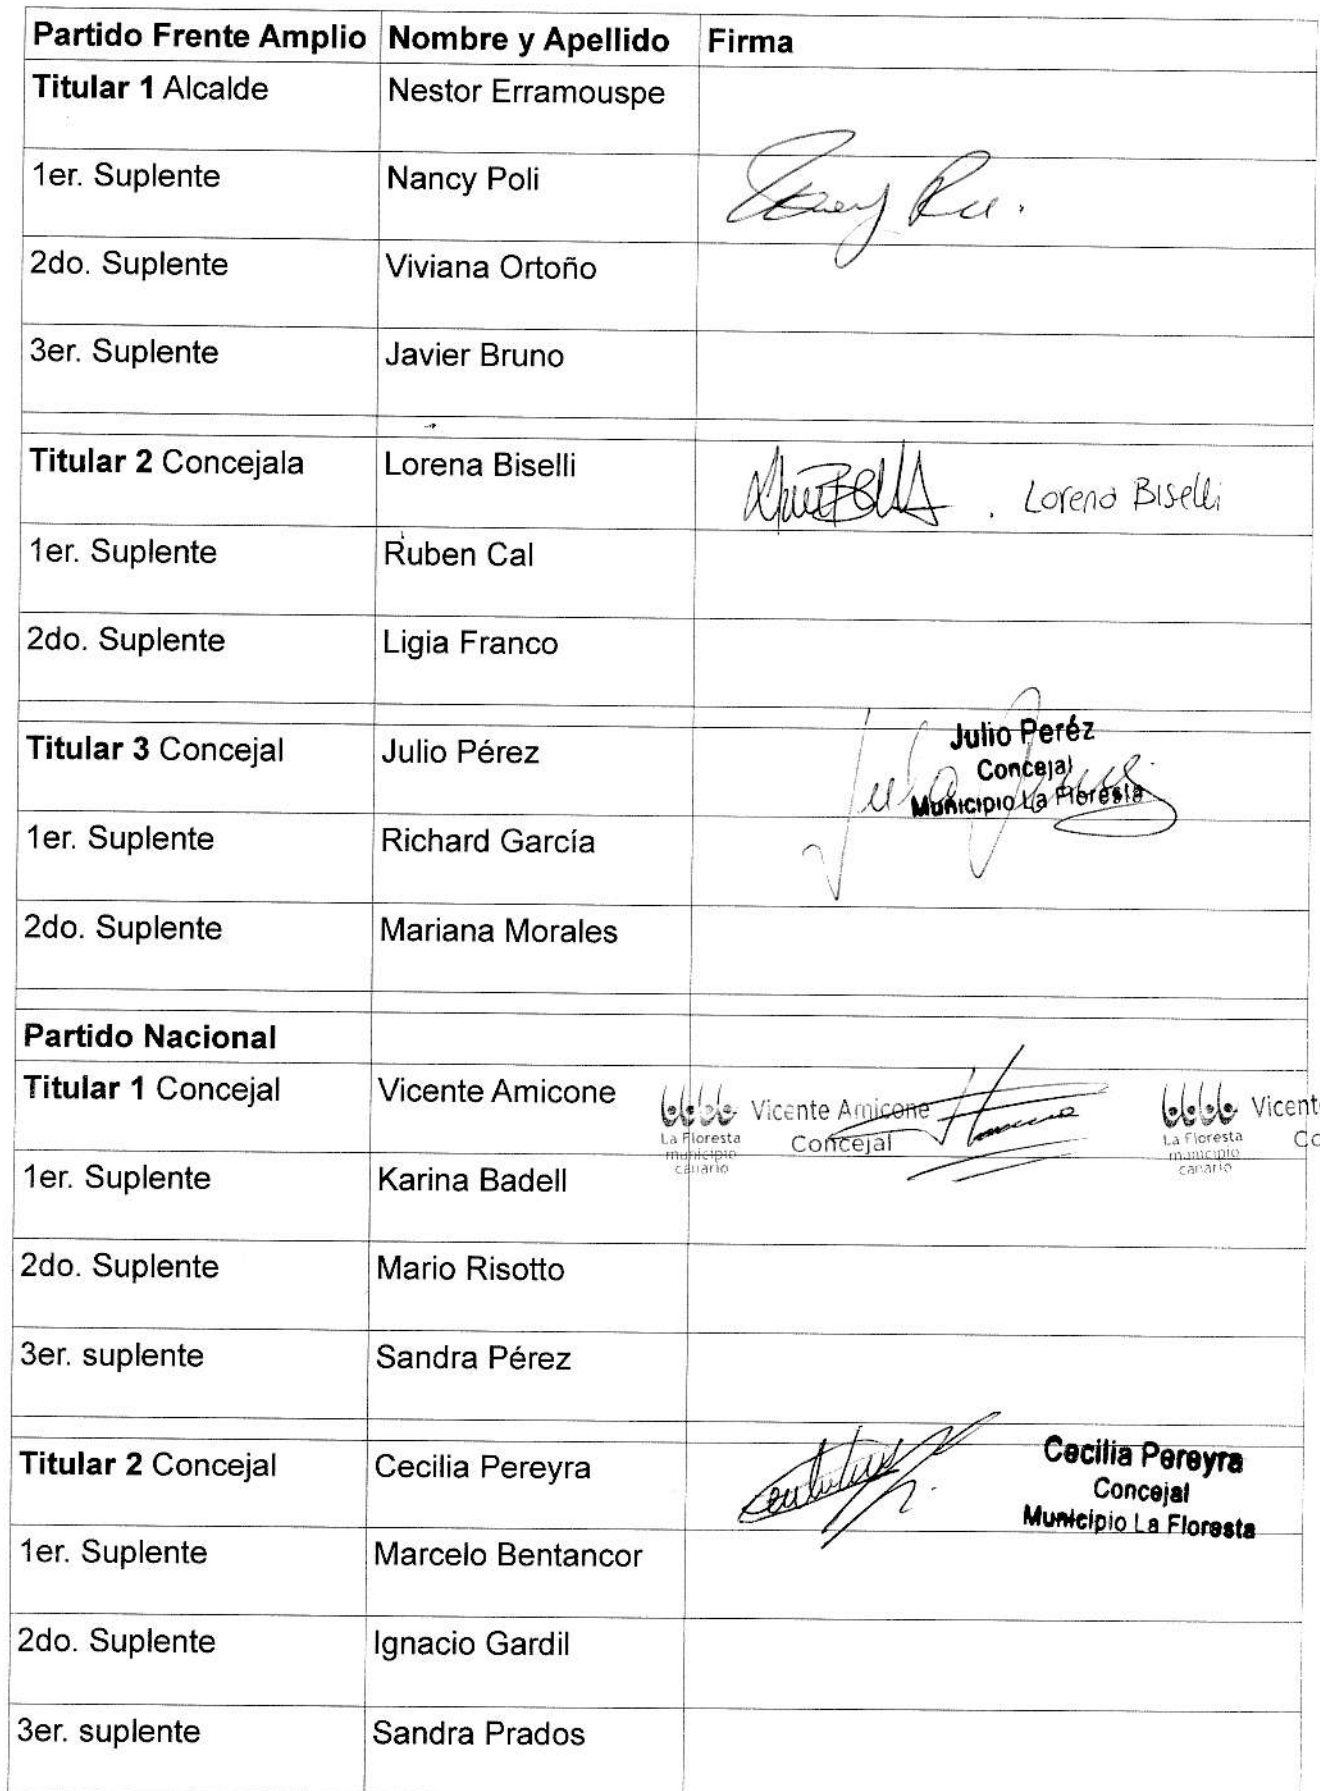 Partido Frente Amplio Nombre y Apellido Firma
Titular 1 Alcalde Nestor Erramouspe
1er. Suplente Nancy Poli
2do. Suplente Viviana Ortoño
3er. Suplente Javier Bruno
Titular 2 Concejala Lorena Biselli Lorena Biselli
1er. Suplente Ruben Cal
2do. Suplente Ligia Franco
Titular 3 Concejal Julio Pérez Julio Peréz
Concejal
Municipio La Floresta
1er. Suplente Richard García
2do. Suplente Mariana Morales
Partido Nacional
Titular 1 Concejal Vicente Amicone Vicente Amicone Vicent
La Floresta Concejal La Floresta Co
municipio municipio
canario canario
1er. Suplente Karina Badell
2do. Suplente Mario Risotto
3er. suplente Sandra Pérez
Titular 2 Concejal Cecilia Pereyra Cecilia Pereyra
Concejal
Municipio La Floresta
1er. Suplente Marcelo Bentancor
2do. Suplente Ignacio Gardil
3er. suplente Sandra Prados